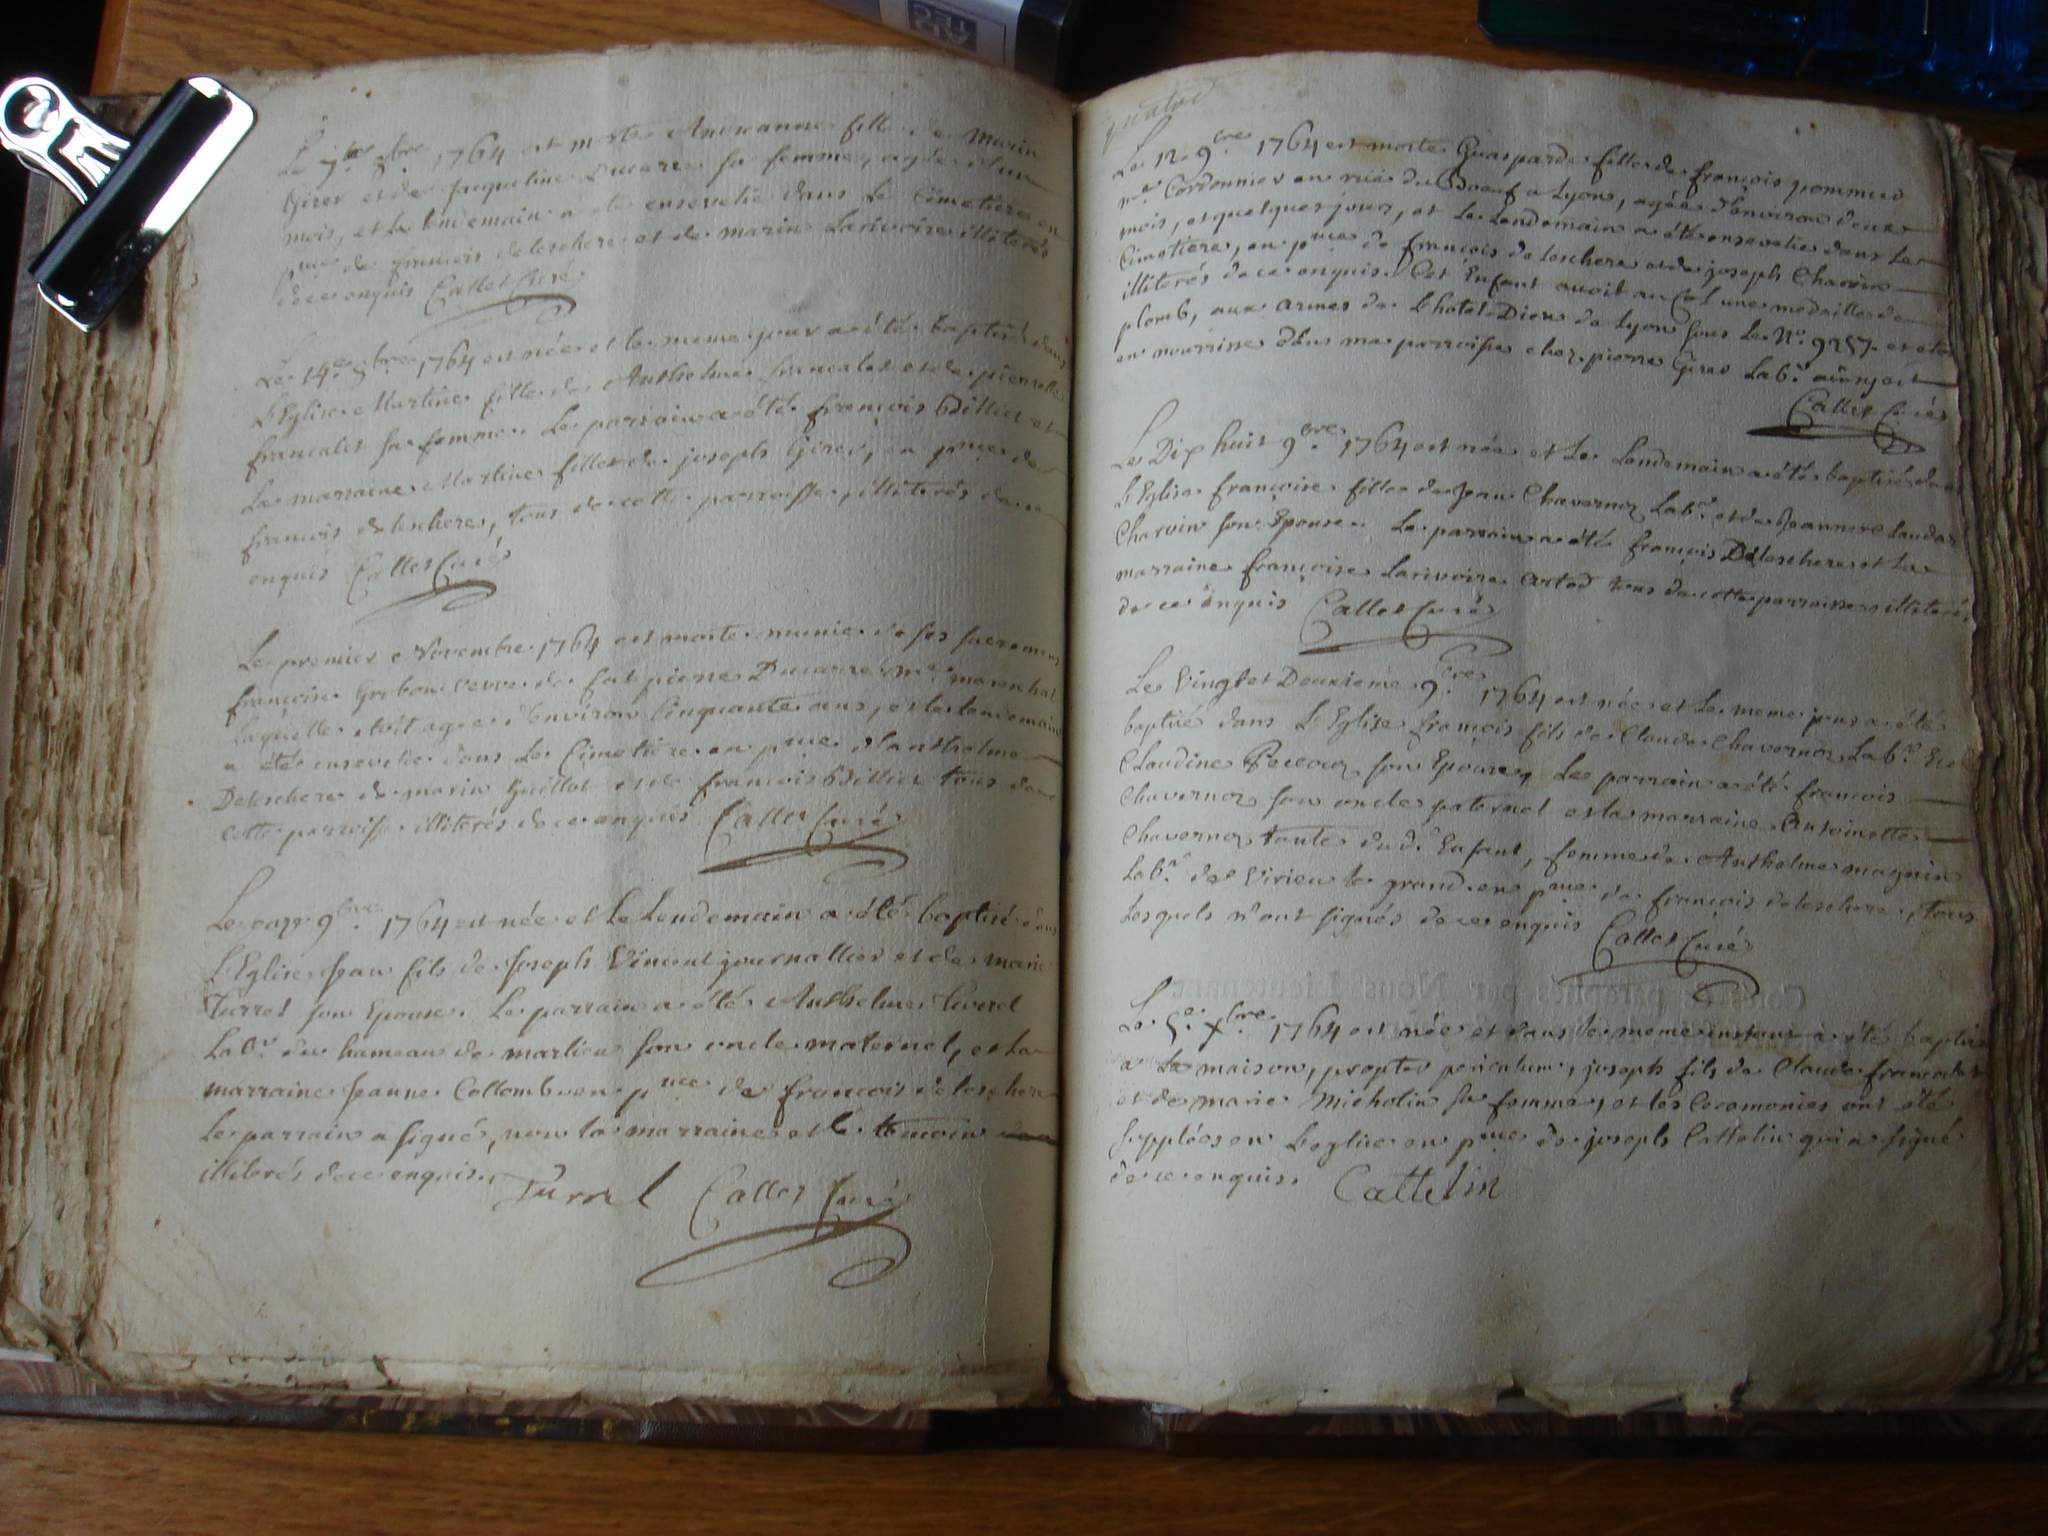 Le 8bre 1764 est morte Andreanne fille de Marin
Girer et de Jacqueline Ducarre sa femme, agée d'un
mois, et le lendemain a été ensevelie dans le Cimetiere en
pnce de françois deleschere et de marin Larivoire illiterés
de ce enquis Callet Curé
Le 14e 8bre 1764 est née et le meme jour a été baptisé dans
L'Eglise Martine fille de Anthelme francalet et de pierrette
francalet sa femme. Le parrain a été françois Billiet et
La marraine Martine fille de joseph Girer, en pnce de
françois deleschere, tous de cette parroisse, illiterés de ce
enquis Callet Curé
Le premier Novembre 1764 est morte munie de ses sacremens
françoise Grobon veuve de fut pierre Ducarre me marechal
Laquelle etoit agée d'Environ Cinquante ans, et le lendemain
a été ensevelie dans Le Cimetiere en pnce d'anthelme
Deleschere de marin Guillot et de françois Billiet tous de
cette parroisse illiterés de ce enquis Callet Curé
Le onze 9bre 1764 est née et le Lendemain a été baptisé dans
L'Eglise Jean fils de Joseph Vincent journallier et de marie
Turrel son Epouse. Le parrain a été Anthelme Turrel
Labr du hameau de marlieu son oncle maternel, et la
marraine Jeanne Collomb en pnce de françois deleschere
Le parrain a signé, non la marraine et le temoin
illiterés de ce enquis
Turrel Callet Curé
Le 12 9bre 1764 est morte Guasparde fille de françois pommier
me Cordonnier en rüe du Boeuf a Lyon, agée d'environ deux
mois, et quelques jours, et Le Lendemain a été ensevelie dans Le
Cimetiere, en pnce de françois deleschere et de joseph Charvin
illiterés de ce enquis. Cet Enfant avoit au Col une medaille de
plomb, aux armes de L'hotel-Dieu de Lyon sous Le No. 9257. et etoit
en nourrisse dans ma parroisse chez pierre Girer Labr
Callet Curé
Le Dix huit 9bre 1764 est née et Le Lendemain a été baptisé dans
L'Eglise françoise fille de Jean Chavernoz Labr et de Jeanne Claudaz
Charvin son Epouse. Le parrain a été françois Deleschere et La
marraine françoise Larivoire tous de cette parroisse illiterés
de ce enquis Callet Curé
Le Vingt et Deuxieme 9bre 1764 est née et Le meme jour a été
baptisé dans L'Eglise françois fils de Claude Chavernoz Labr Et de
Claudine son Epouse, Le parrain a été françois
Chavernoz son oncle paternel et la marraine Antoinette
Chavernoz tante du d. Enfant, femme de Anthelme magnin
Labr de Virieu le grand en pnce de françois deleschere, tous
Lesquels n'ont signés de ce enquis
Callet Curé
Le 5e Xbre 1764 est née et dans le meme instant a été baptisé
a La maison, propter periculum, joseph fils de Claude francalet
et de marie Micholin sa femme, et les Ceremonies ont été
supplées en L'eglise en pnce de joseph Cattelin qui a signé
de ce enquis. Cattelin